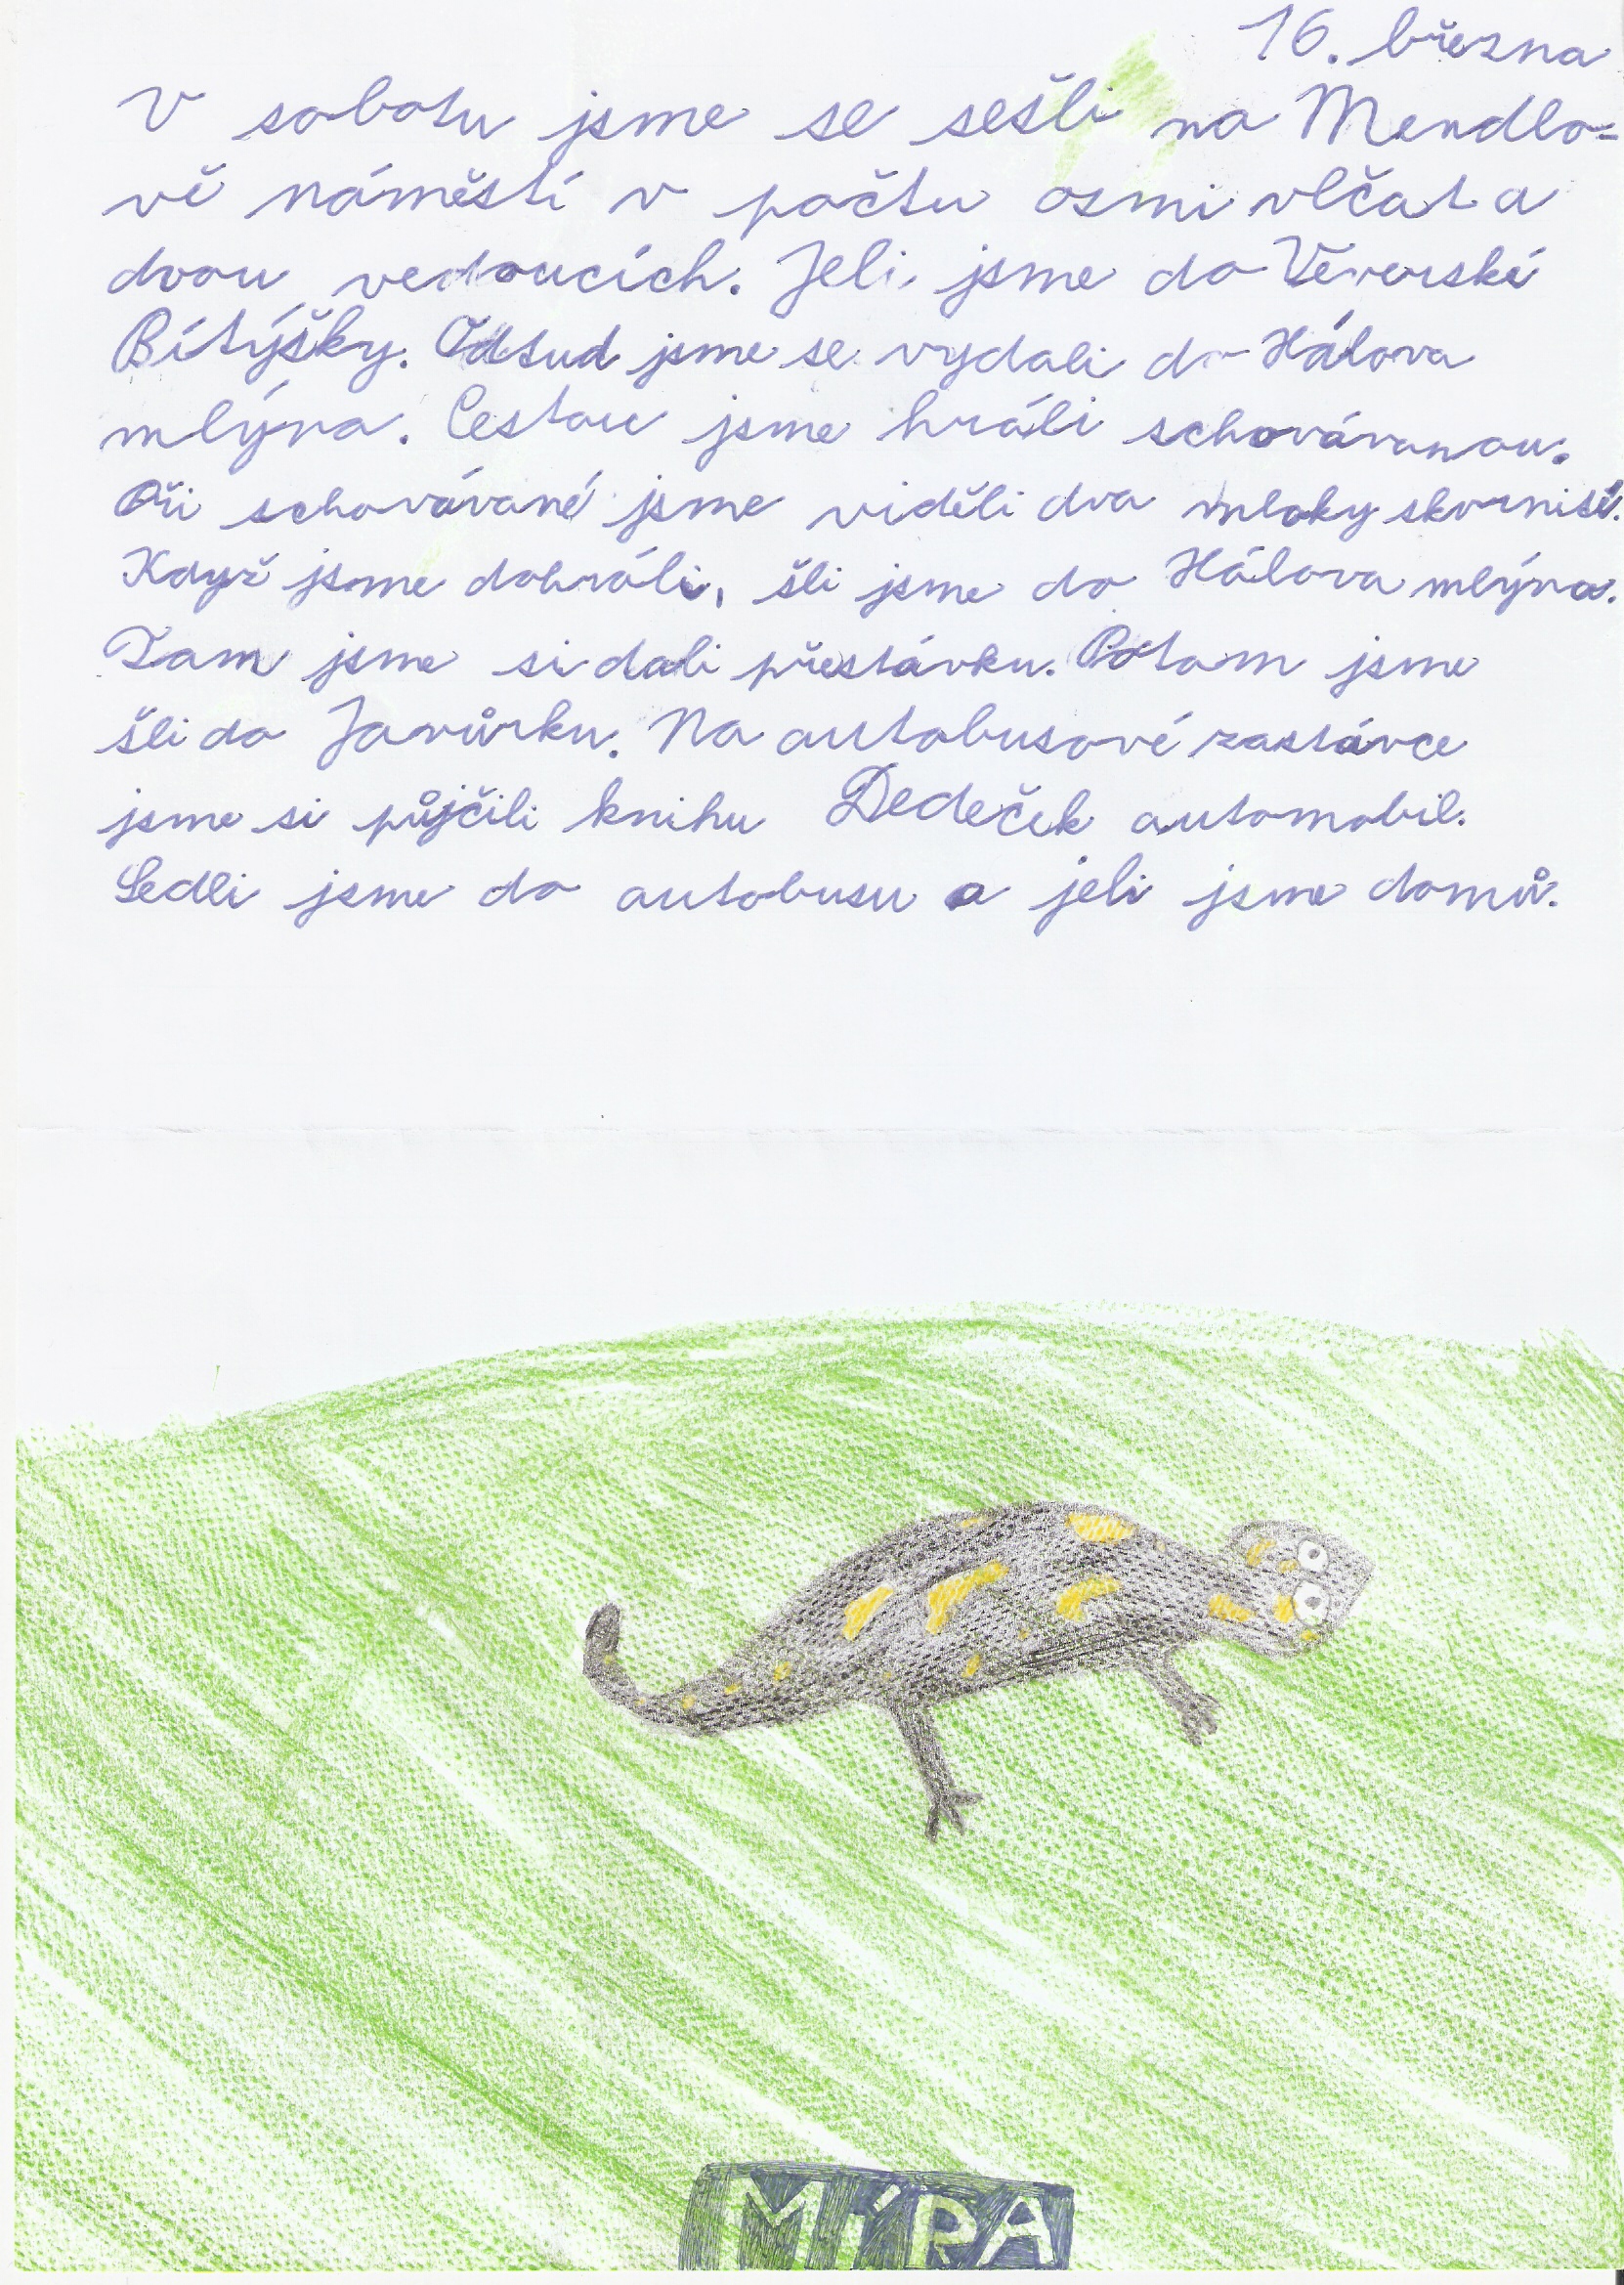 16. března
V sobotu jsme se sešli na Mendlo=
vě náměstí v počtu osmi vlčat a
dvou vedoucích. Jeli jsme do Veverské
Bítýšky. Odtud jsme se vydali do Hálova
mlýna. Cestou jsme hráli schovávanou.
Při schovávané jsme viděli dva mloky skvrnité.
Když jsme dohráli, šli jsme do Hálova mlýna.
Tam jsme si dali přestávku. Potom jsme
šli do Javůrku. Na autobusové zastávce
jsme si půjčili knihu Dedeček automobil.
Sedli jsme do autobusu a jeli jsme domů.
MÍRA